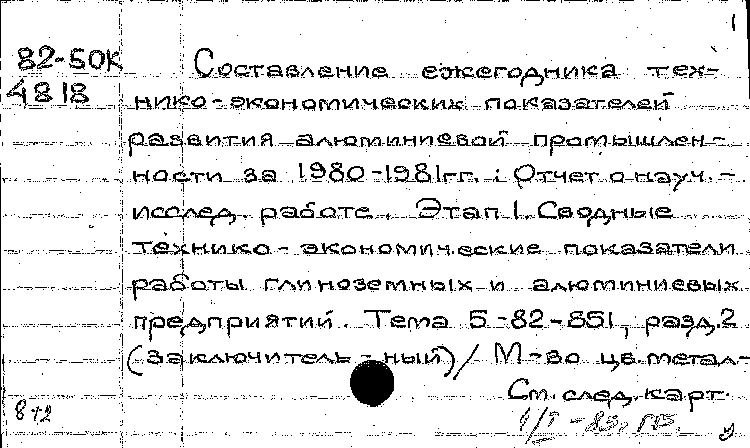 1
82-50К
4818
Составление ежегодника тех-
нико-экономических показателей
развития алюминиевой промышлен-
ности за 1980-1981гг. : Отчет о науч.-
исслед. работе. Этап 1. Сводные
технико-экономические показатели
работы глиноземных и алюминиевых
предприятий. Тема 5-82-851, разд.2
(заключитель-ный) / М-во цв.метал-
См. след. карт.
872